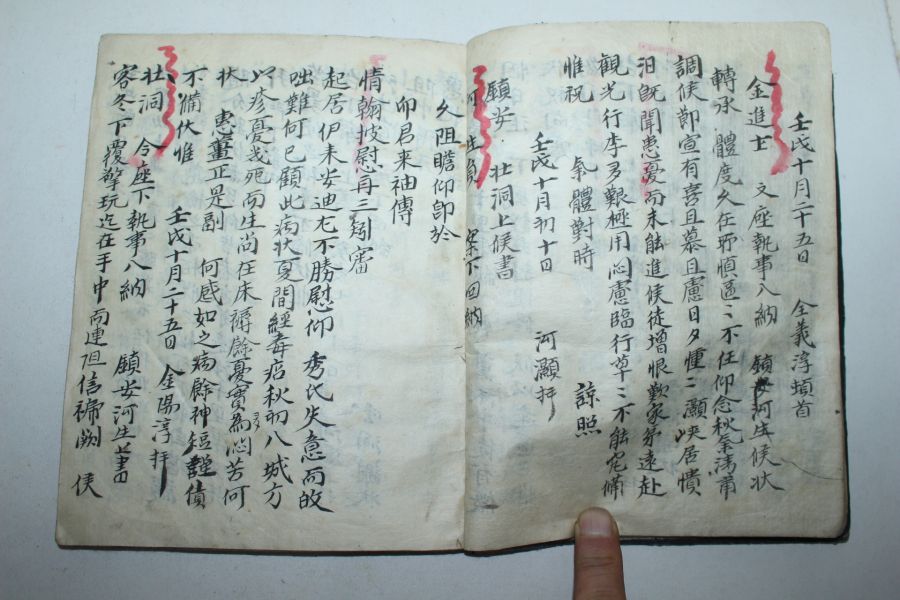 壬戌十月二十五日 全義淳頓首
金進士 文座執事入納 鎭安河生候狀
轉承 體度久在耶愼區〻不任仰念秋氣淸肅
調候卽宣有喜且慕且慮日夕憧〻灝峽居憒
汨旣聞患憂而未能進候徒增恨歎家弟遠赴
觀光行李多艱極用悶慮臨行草〻不能宛備
惟祝 氣體對時 諒照
壬戌十月初十日 河灝拜
鎭安 壯洞上候書
河生員 案下回納
久阻瞻仰卽於
卯君来袖傳
情翰披慰再三矧審
起居伊来安迪尤不勝慰仰 秀氏失意而故
咄難何已顧此病状夏間經毒痁秋初八城方
以疹憂幾死而生尙在床褥餘憂實爲悶苦何
状 惠薑正是副 何感如之病餘神短謹倩
不備伏惟 壬戌十月二十五日 金陽淳拜
壯洞 令座下執事入納 鎭安河生上書
客冬下覆擎玩迄在手中而連阻信褫闕 候